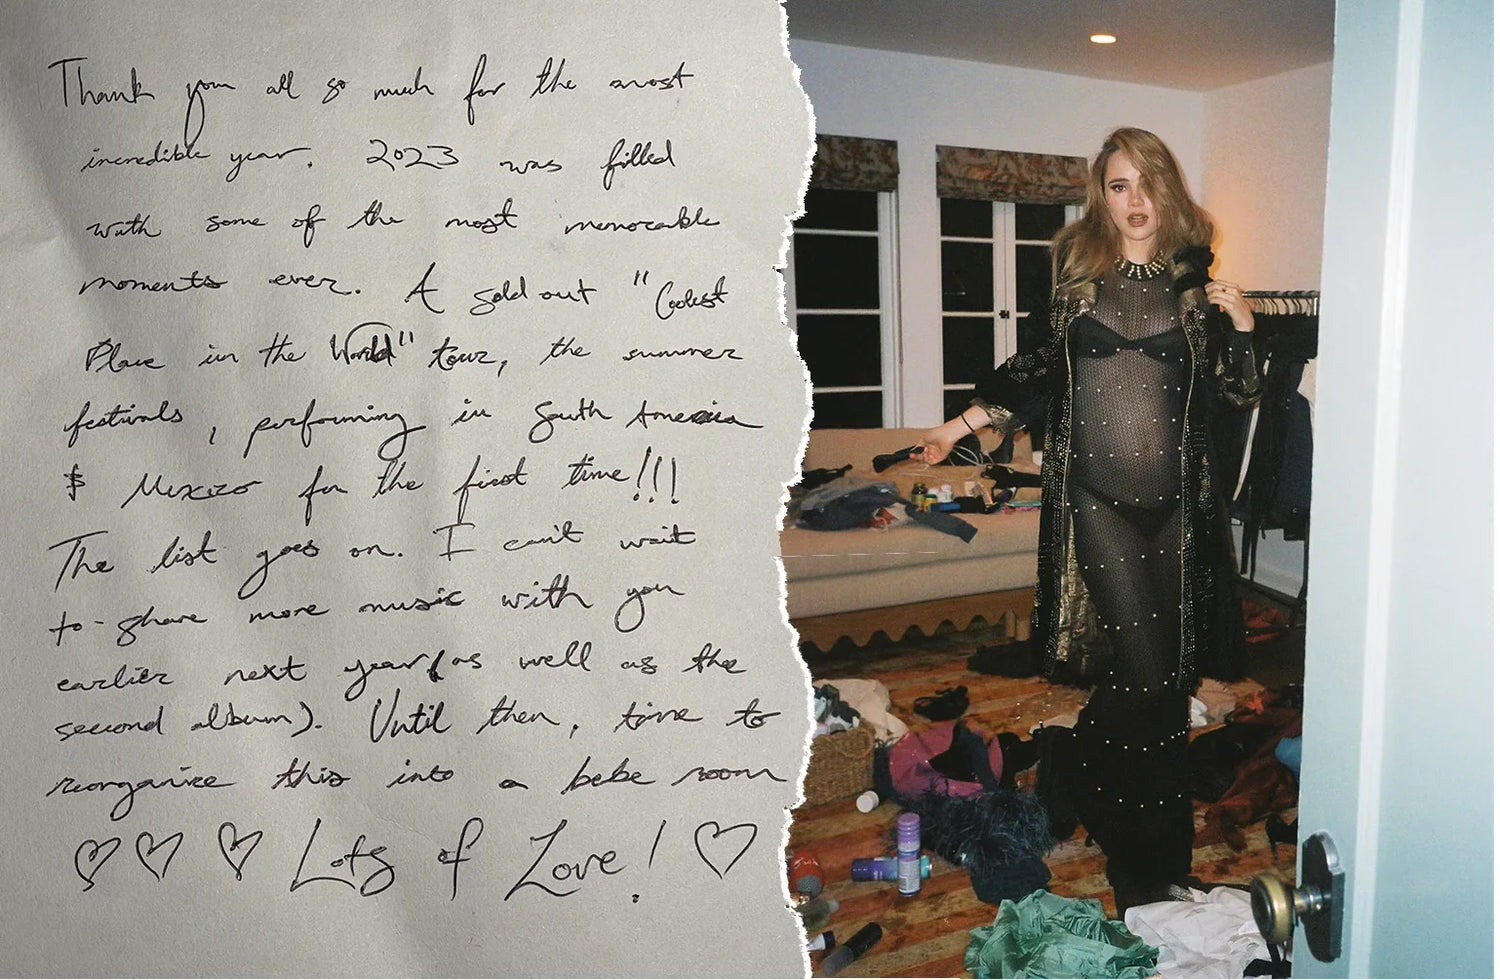 Thank you all so much for the most
incredible year. 2023 was filled
with some of the most memorable
moments ever. A sold out "Coolest
Place in the World" tour, the summer
festivals, performing in South America
& Mexico for the first time!!!
The list goes on. I can't wait
to share more music with you
earlier next year (as well as the
second album). Until then, time to
reorganize this into a bebe room
♡♡ ♡ Lots of Love! ♡